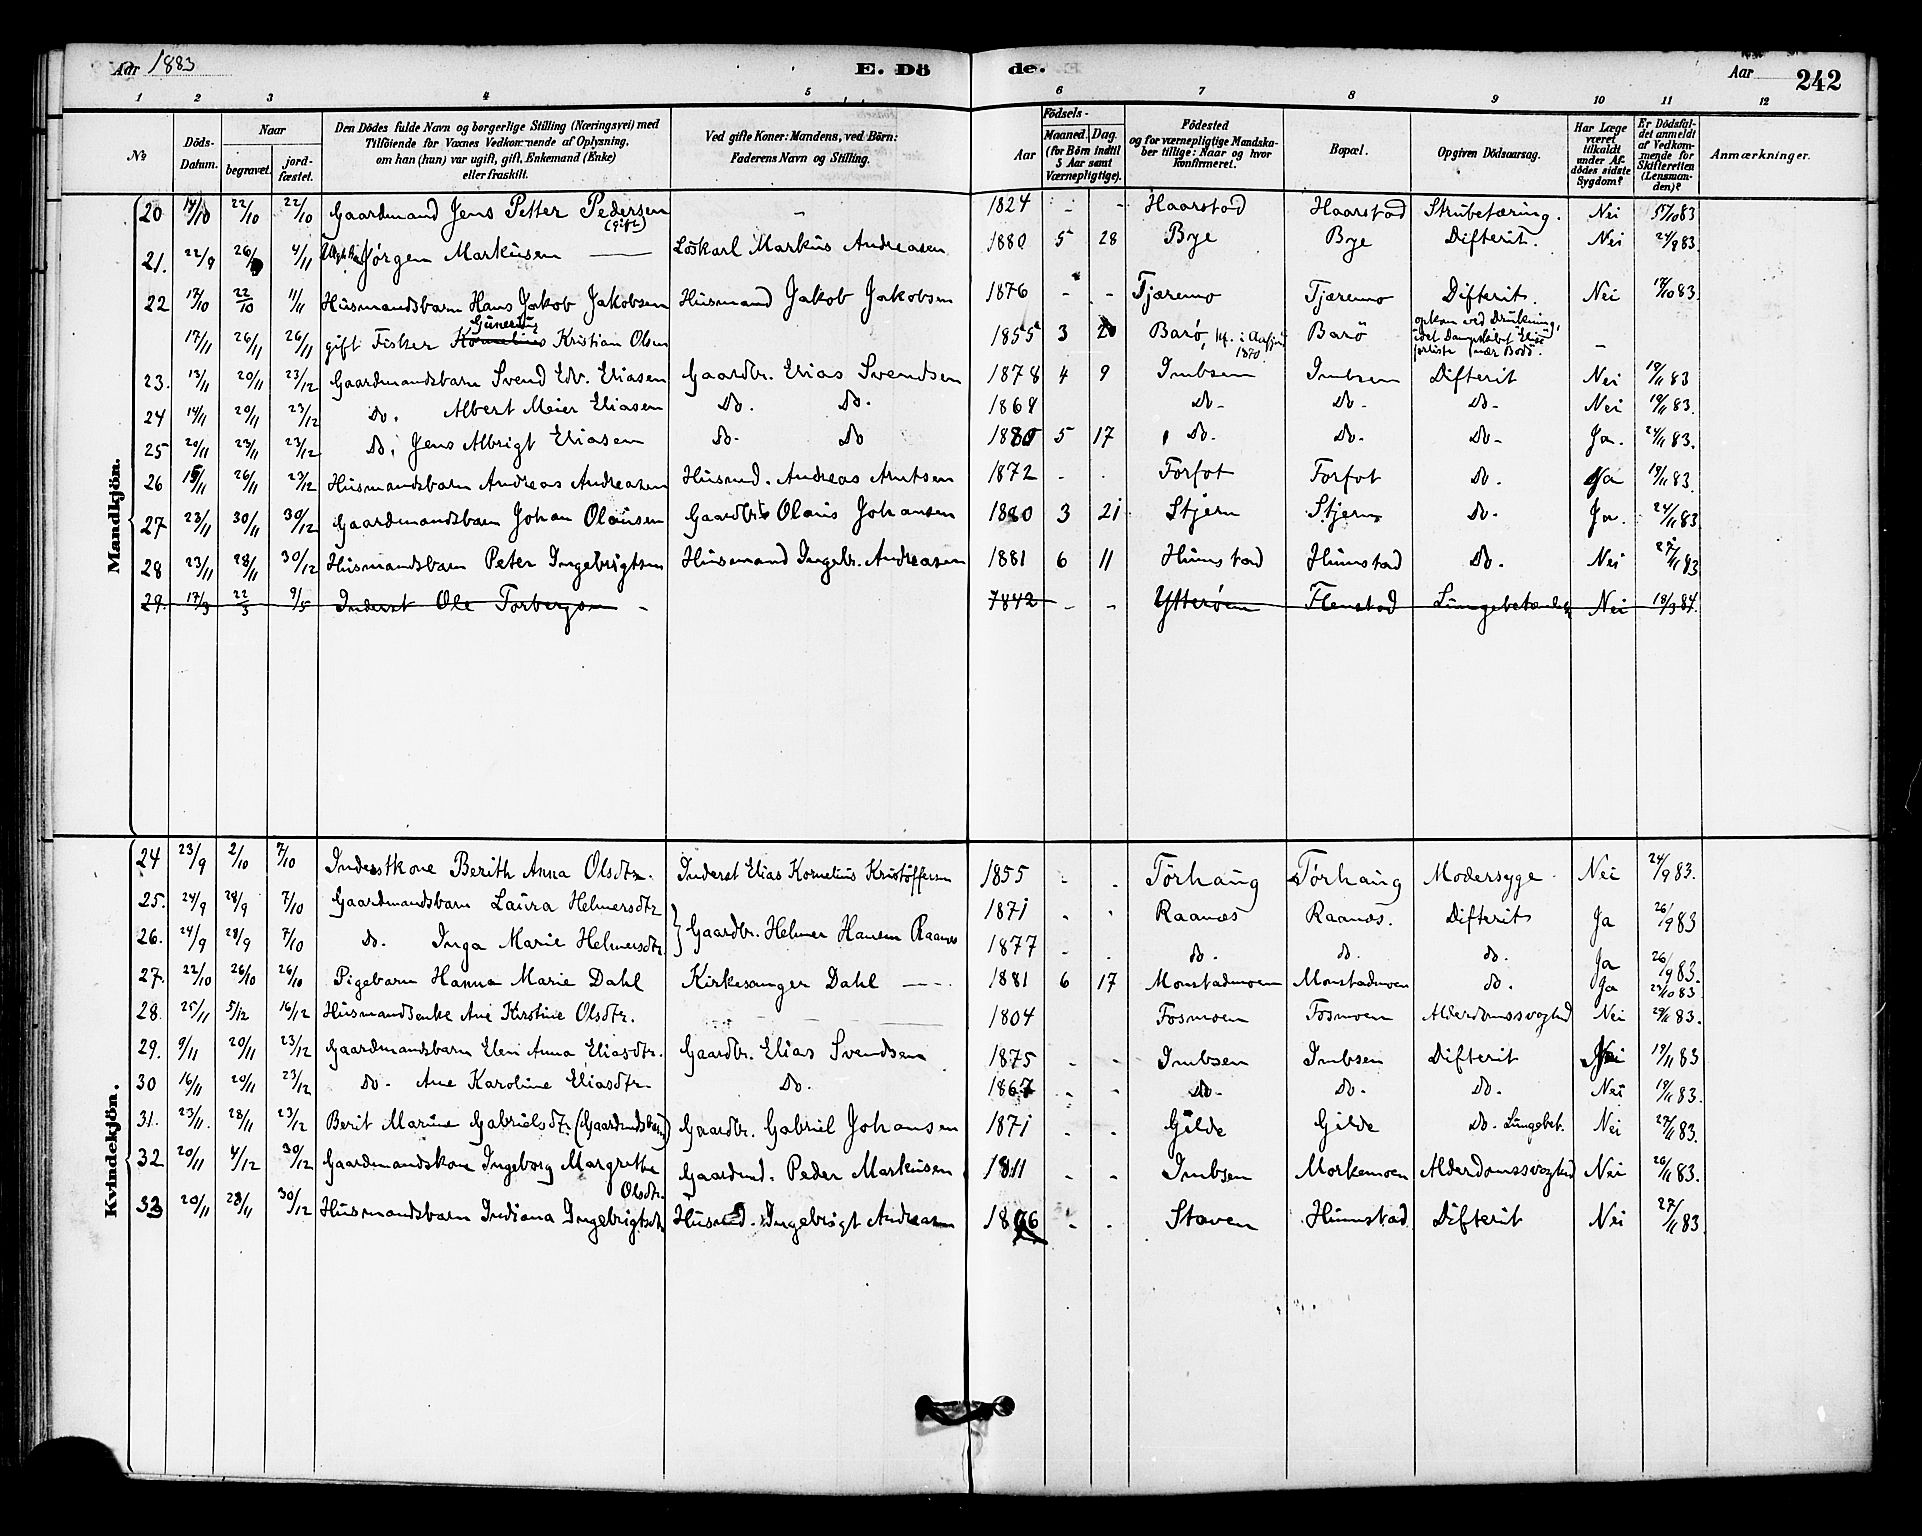 Aar 1883 E. Dö de. Aar 242
1 2 3 4 5 6 7 8 9 10 11 12
No Döds-Datum. Naar begravet. jordfæstet. Den Dödes fulde Navn og borgerlige Stilling (Næringsvei) med Tilföiende for Voxnes Vedkommende af Oplysning, om han (hun) var ugift, gift, Enkemand (Enke) eller fraskilt. Ved gifte Koner: Mandens, ved Börn: Faderens Navn og Stilling. Födsels- Aar Maaned. Dag. (for Börn indtil 5 Aar samt Værnepligtige). Födested og for værnepligtige Mandskaber tillige: Naar og hvor konfirmeret. Bopæl. Opgiven Dödsaarsag. Har Læge været tilkaldt under Afdödes sidste Sygdom? Er Dödsfaldet anmeldt af Vedkommende for Skifteretten (Lensmanden)? Anmærkninger.
Mandkjön.
20 14/10 22/10 22/10 Gaardmand Jens Petter Pedersen (gift) - 1824 - - Haarstad Haarstad Strubetæring. Nei 83
21. 22/9 26/9 4/11 Jørgen Markusen Löskarl Markus Andreasen 1880 5 28 Bye Bye Difterit. Nei 24/9 83.
22 17/10 22/10 11/11 Husmandsbarn Hans Jakob Jakobsen Husmand Jakob Jakobsen 1876 - - Tjæremo Tjæremo Difterit. Nei 18/10 83.
17/11 26/11 26/11 gift Fisker Kornelius Kristian Olsen 1855 3 20 Barø, kf. i 1870 Barö omkom ved Drukning, idet Dampskibet forliste nær Bodö. -
23. 13/11 20/11 23/12 Gaardmandsbarn Svend Edv. Eliasen Gaardbr. Elias Svendsen 1878 4 9 Imbsen Imbsen Difterit Nei 19/11 83
24 14/11 20/11 23/12 Do. Albert Meier Eliasen Do. Do. 1869 Do- Do- Do- Nei 19/11 83.
25 20/11 23/11 23/12 Do. Jens Albrigt Eliasen Do- Do 1880 5 17 Do. Do- Do- Ja. 24/11 83.
26 15/11 26/11 23/12 Husmandsbarn Andreas Andreasen Husmd. Andreas Arntsen 1872 - . Forfot Forfot Do. Ja 19/11 83.
27 23/11 30/11 30/12 Gaardmandsbarn Johan Olausen Gaardbr. Olaus Johansen 1880 3 21 Stjern Stjern Do- Ja. 24/11 83
28 23/11 28/11 30/12 Husmandsbarn Peter Ingebrigtsen Husmand Ingebr. Andreasen 1881 6 11 Humstad Humstad Do. Nei 27/11 83
29. 17/3 22/3 9/5 Inderst Ole Torbergsen - 1842 - - Ytterøen Flenstad Lungebetændels Nei 18/3 84.
Kvindekjön.
24 23/9 2/10 7/10 Inderstkone Berith Anna Olsdtr. Inderst Elias Kornelius Kristoffersen 1855 - . Törhaug Törhaug Modersyge - Nei 24/9 83.
25. 24/9 28/9 7/10 Gaardmandsbarn Laura Helmersdtr Gaardbr. Helmer Hansen Raanæs 1871 - . Raanæs Raanæs. Difterit Ja 26/9 83
26. 24/9 28/9 7/10 do. Inga Marie Helmersdtr. 1877 - . do. do. do. Ja 26/9 83.
27. 22/10 26/10 26/10 Pigebarn Hanna Marie Dahl Kirkesanger Dahl 1881 6 17 Monstadmoen Monstadmoen do. Ja 23/10 83
28. 25/11 5/12 16/12 Husmandsenke Ane Kirstine Olsdtr. 1804 Fosmoen Fosmoen Alderdomssvaghed Nei 29/11 83.
29. 9/11 20/11 23/12 Gaardmandsbarn Elen Anna Eliasdtr. Gaardbr. Elias Svendsen 1875 - - Imbsen Imbsen Difterit Nei 19/11 83
30 16/11 20/11 23/12 do- Ane Karoline Eliasdtr Do. 1867 - - Do- Do- Do. Nei 19/11 83.
31. 23/11. 28/11 23/12 Berit Marine Gabrielsdtr. (Gaardmdsbarn) Gaardbr. Gabriel Johansen 1871 - . Gilde Gilde Do. Lungebet. Nei 27/11 83.
32 20/11 4/12 30/12 Gaardmandskone Ingeborg Margrethe Olsdtr. Gaardmd. Peder Markusen 1811 - - Imbsen Morkemoen Alderdomssvaghed Nei 26/11 83.
33 20/11 28/11 30/12 Husmandsbarn Indiana Ingebrigtsdtr Husmd. Ingebrigt Andreasen 1876 - . Staven Humstad Difterit Nei 27/11 83